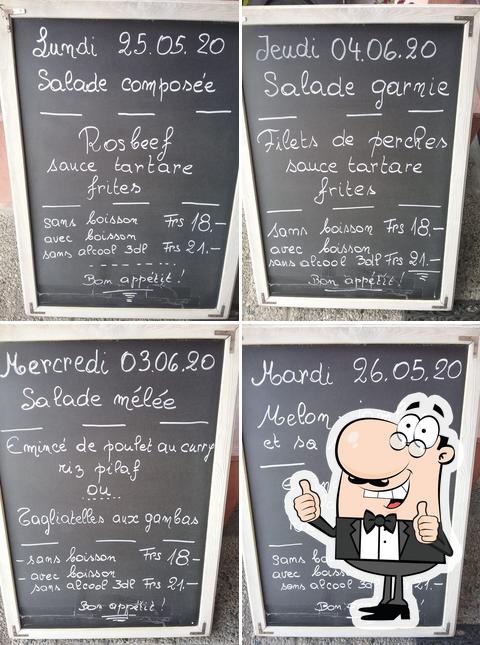 Lundi 25.05.20
Salade composée
Rosbeef
sauce tartare
frites
sans boisson Frs 18.-
avec boisson
sans alcool 3dl Frs 21.-
Bon appétit !
Jeudi 04.06.20
Salade garnie
Filets de perches
sauce tartare
frites
sans boisson Frs 18.-
avec boisson
sans alcool 3dl Frs 21.-
Bon appétit !
Mercredi 03.06.20
Salade mélée
Emincé de poulet au curry
riz pilaf
ou
Tagliatelles aux gambas
- sans boisson Frs 18.-
- avec boisson
sans alcool 3dl Frs 21.-
Bon appétit !
Mardi 26.05.20
Melon
et sa
sans
avec
sans
Bon